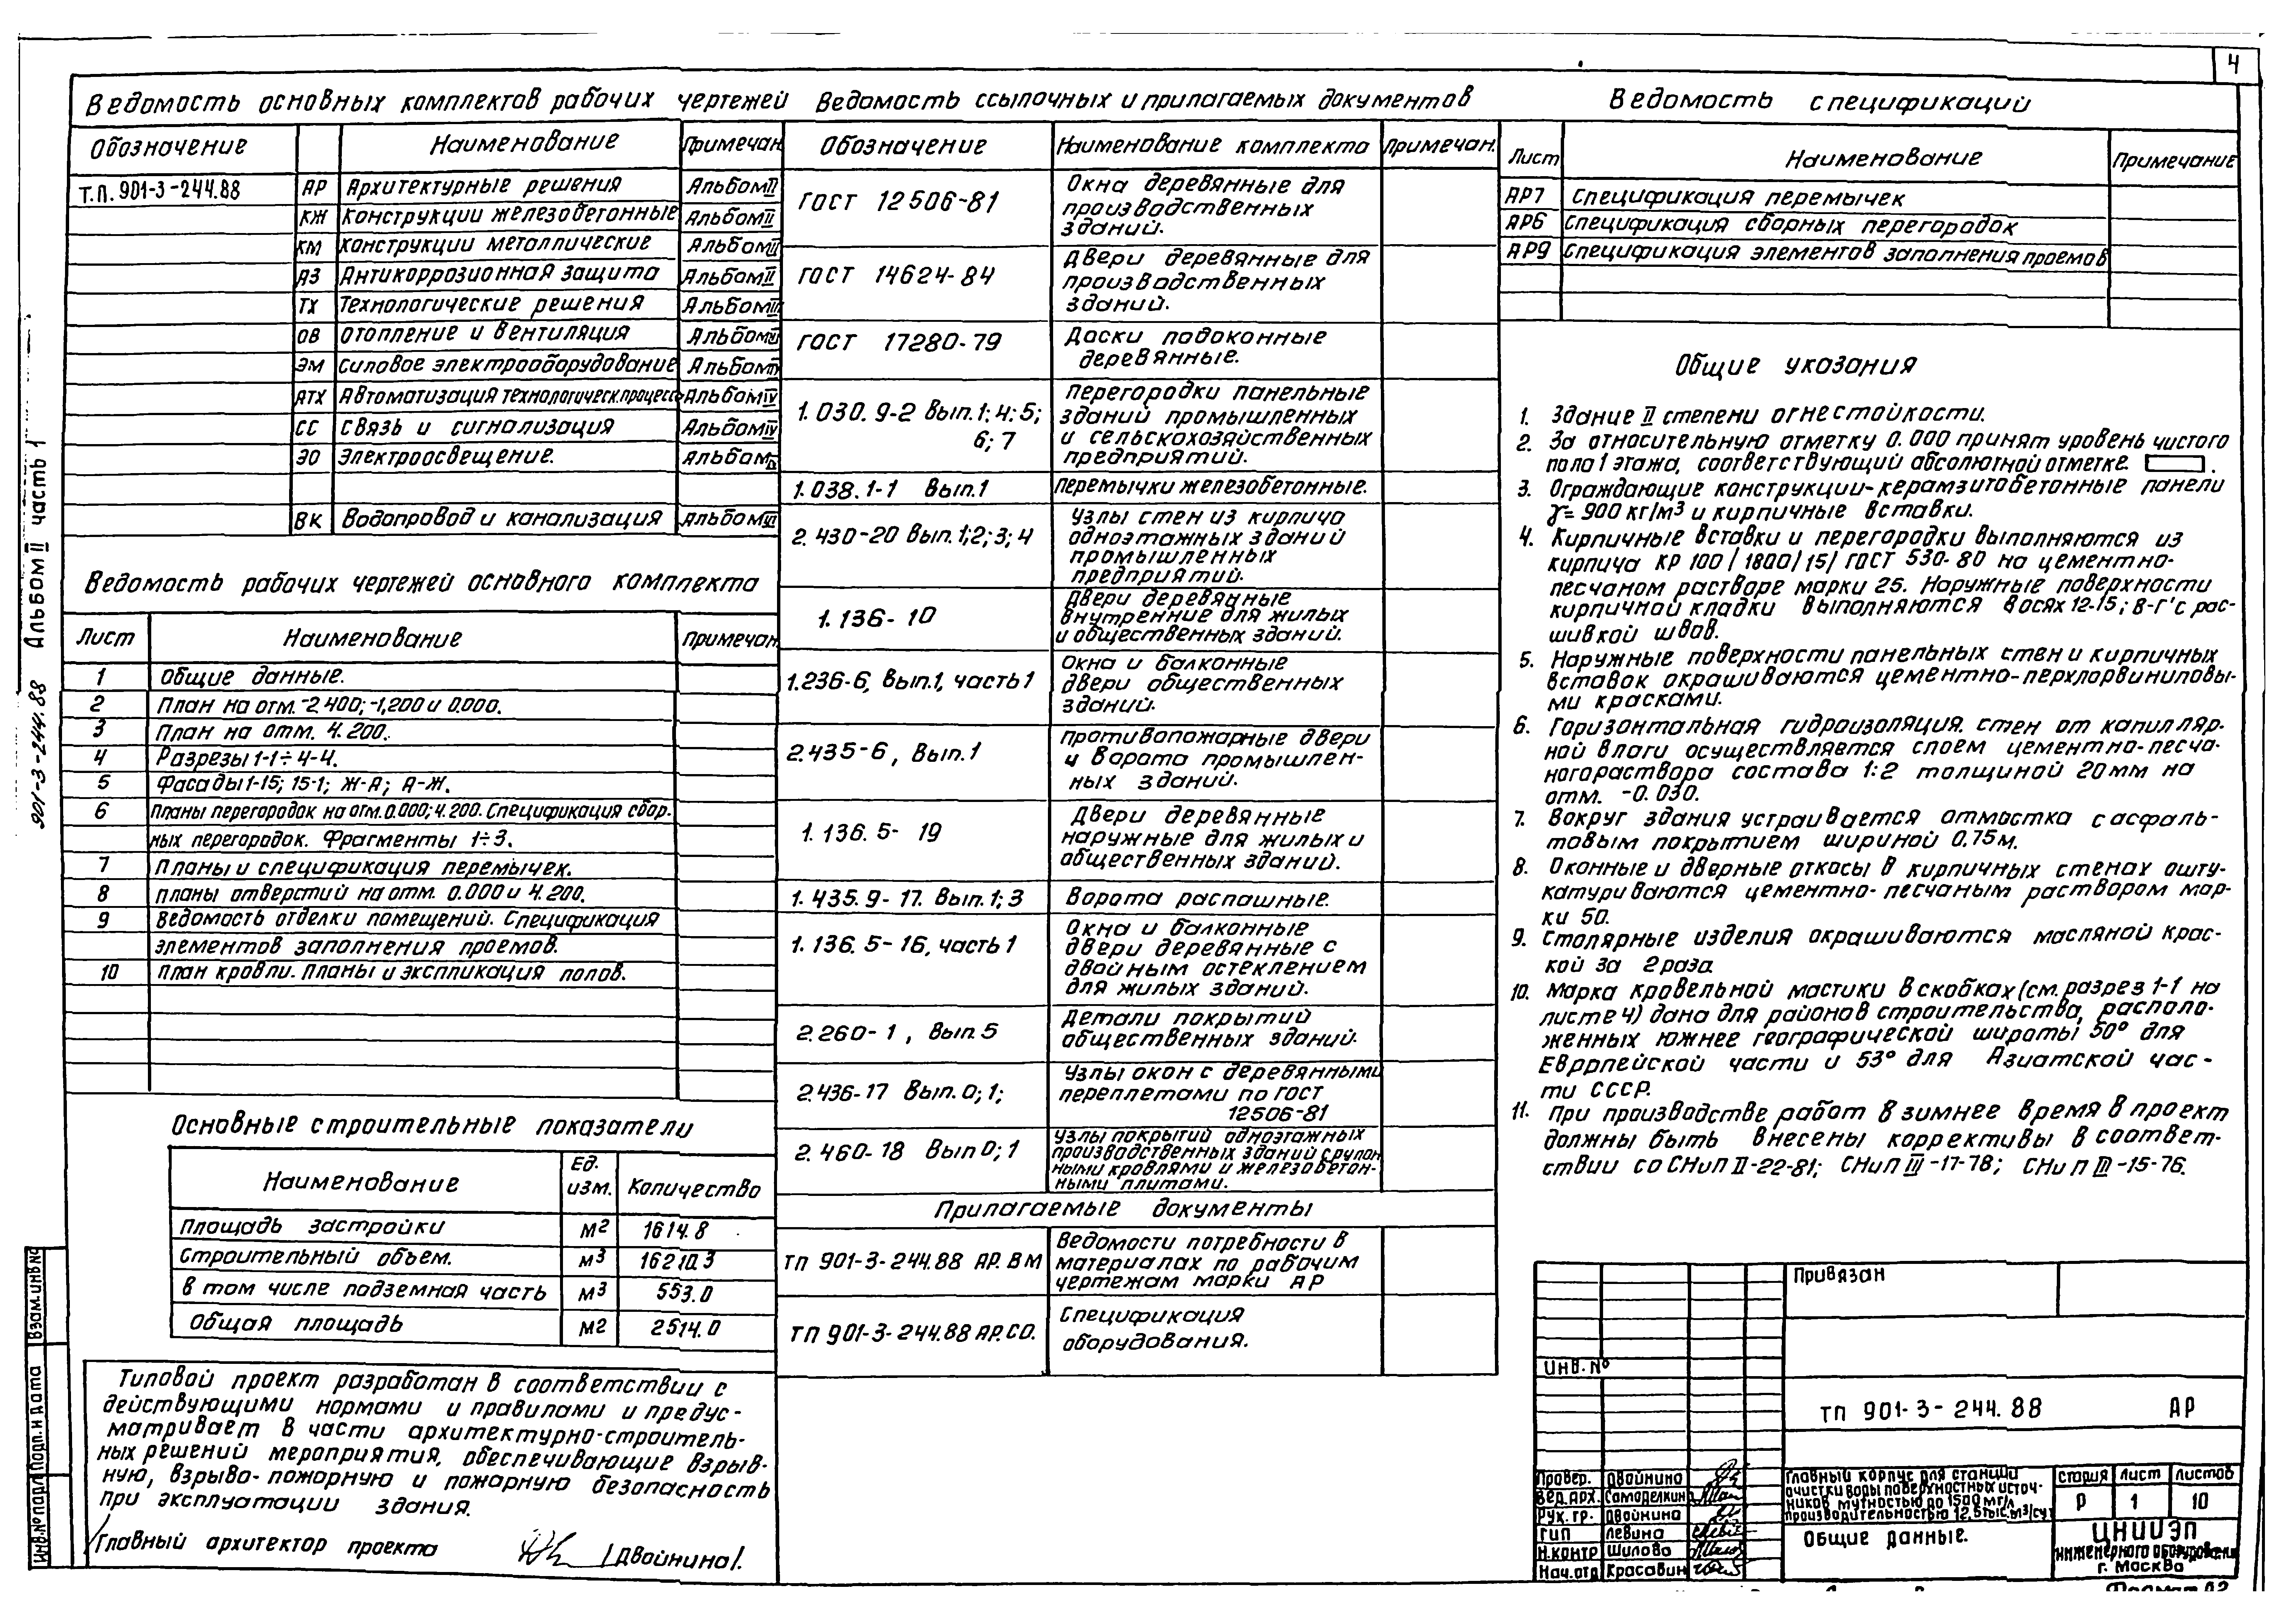 4
Ведомость основных комплектов рабочих чертежей
Обозначение Наименование Примечан.
Т.П. 901-3-244.88 АР Архитектурные решения Альбом II
КЖ Конструкции железобетонные Альбом II
КМ Конструкции металлические Альбом II
АЗ Антикоррозионная защита Альбом II
ТХ Технологические решения Альбом III
ОВ Отопление и вентиляция Альбом
ЭМ Силовое электрооборудование Альбом
АТХ Автоматизация технологическ. процессо Альбом IV
СС Связь и сигнализация Альбом IV
ЭО Электроосвещение. Альбом
ВК Водопровод и канализация Альбом
Ведомость рабочих чертежей основного комплекта
Лист Наименование Примечан.
1 Общие данные.
2 План на отм. -2.400; -1,200 и 0.000.
3 План на отм. 4.200.
4 Разрезы 1-1÷4-4.
5 Фасады 1-15; 15-1; Ж-А; А-Ж.
6 Планы перегородок на отм. 0.000; 4.200. Спецификация сбор-
ных перегородок. Фрагменты 1÷3.
7 Планы и спецификация перемычек.
8 Планы отверстий на отм. 0.000 и 4.200.
9 Ведомость отделки помещений. Спецификация
элементов заполнения проемов.
10 План кровли. Планы и экспликация полов.
Основные строительные показатели
Наименование Ед. изм. Количество
Площадь застройки м2 1614.8
Строительный объем. м3 16210.3
В том числе подземная часть м3 553.0
Общая площадь м2 2514.0
Типовой проект разработан в соответствии с
действующими нормами и правилами и предус-
матривает в части архитектурно-строитель-
ных решений мероприятия, обеспечивающие взрыв-
ную, взрыво-пожарную и пожарную безопасность
при эксплуатации здания.
Главный архитектор проекта /Двойнина/.
Ведомость ссылочных и прилагаемых документов
Обозначение Наименование комплекта Примечан.
ГОСТ 12506-81 Окна деревянные для
производственных
зданий.
ГОСТ 14624-84 Двери деревянные для
производственных
зданий.
ГОСТ 17280-79 Доски подоконные
деревянные.
1.030.9-2 Вып.1; 4; 5; Перегородки панельные
6; 7 зданий промышленных
и сельскохозяйственных
предприятий.
1.038.1-1 Вып.1 Перемычки железобетонные.
2.430-20 Вып.1;2;3;4 Узлы стен из кирпича
одноэтажных зданий
промышленных
предприятий.
1.136-10 Двери деревянные
внутренние для жилых
и общественных зданий.
1.236-6, Вып.1, часть 1 Окна и балконные
двери общественных
зданий.
2.435-6, Вып.1 Противопожарные двери
и ворота промышлен-
ных зданий.
1.136.5-19 Двери деревянные
наружные для жилых и
общественных зданий.
1.435.9-17. Вып.1;3 Ворота распашные.
1.136.5-16, часть 1 Окна и балконные
двери деревянные с
двойным остеклением
для жилых зданий.
2.260-1, Вып.5 Детали покрытий
общественных зданий.
2.436-17 Вып.0;1; Узлы окон с деревянными
переплетами по ГОСТ
12506-81
2.460-18 Вып 0;1 Узлы покрытий одноэтажных
производственных зданий с рулон
ными кровлями и железобетон-
ными плитами.
Прилагаемые документы
ТП 901-3-244.88 АР.ВМ Ведомости потребности в
материалах по рабочим
чертежам марки АР
ТП 901-3-244.88 АР.СО. Спецификация
оборудования.
Ведомость спецификаций
Лист Наименование Примечание
АР7 Спецификация перемычек
АР6 Спецификация сборных перегородок
АР9 Спецификация элементов заполнения проемов
Общие указания
1. Здание II степени огнестойкости.
2. За относительную отметку 0.000 принят уровень чистого
пола 1 этажа, соответствующий абсолютной отметке .
3. Ограждающие конструкции-керамзитобетонные панели
γ=900 кг/м3 и кирпичные вставки.
4. Кирпичные вставки и перегородки выполняются из
кирпича КР 100/1800/15/ ГОСТ 530-80 на цементно-
песчаном растворе марки 25. Наружные поверхности
кирпичной кладки выполняются в осях 12-15; В-Г' с рас-
шивкой швов.
5. Наружные поверхности панельных стен и кирпичных
вставок окрашиваются цементно-перхлорвиниловы-
ми красками.
6. Горизонтальная гидроизоляция стен от капилляр-
ной влаги осуществляется слоем цементно-песча-
ного раствора состава 1:2 толщиной 20мм на
отм. -0.030.
7. Вокруг здания устраивается отмостка с асфаль-
товым покрытием шириной 0.75м.
8. Оконные и дверные откосы в кирпичных стенах ошту-
катуриваются цементно-песчаным раствором мар-
ки 50.
9. Столярные изделия окрашиваются масляной крас-
кой за 2 раза
10. Марка кровельной мастики в скобках (см. разрез 1-1 на
листе 4) дана для районов строительства, располо-
женных южнее географической широты 50° для
Европейской части и 53° для Азиатской час-
ти СССР.
11. При производстве работ в зимнее время в проект
должны быть внесены коррективы в соответ-
ствии со СНиП II-22-81; СНиП III-17-78; СНиП III-15-76.
Привязан
Инв. №
ТП 901-3-244.88 АР
Провер. Двойнина
Вед.арх. Самоделкина
Рук. гр. Двойнина
ГИП Левина
Н.контр Шилова
Нач.отд Красавин
Главный корпус для станции
очистки воды поверхностных источ-
ников мутностью до 1500 мг/л
производительностью 12,5тыс.м3/сут
Стадия Лист Листов
Р 1 10
Общие данные.
ЦНИИЭП
инженерного оборудования
г. Москва
Формат А2
901-3-244.88 Альбом II часть 1
Взам.инв№
Подп. и дата
Инв.№ подл